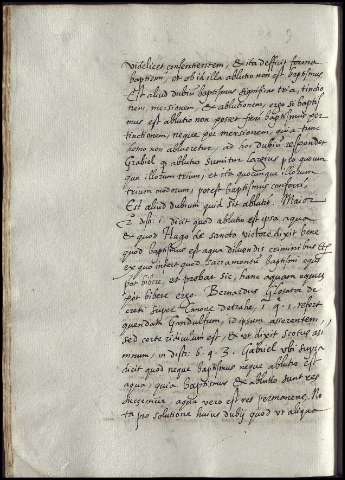 videlicet consentientem, & ita deffuit forma
baptismi, et ob id illa ablutio non est baptismus
Est aliud dubiũ baptismus significat tria, tinctio
nem, mersionem, & ablutionem, ergo si baptis
mus est ablutio non posset fieri baptismus per
tinctionem, neque per mersionem, quia tunc
homo non ablueretur, ad hoc dubiũ respondet
Grabiel q ablutio sumitur largius pro quocun
que illorum trium, et ita quocunque illorum
trium modorum, potest baptismus conferri.
Est aliud dubium quid sit ablutio. Maior
dicit quod ablutio est ipsa aqua
& quod Hugo de sancto victore dixit bene
quod baptismus est aqua diluendis criminibus
ex quo infert quod sacramentũ baptismi equs
pot bibere, et probat sic, hanc aquam equus
pot bibere ergo. Bernardus Glosator de
creti super Canone detrahe, 1. q. 1. refert
quendam Gandulfum, id ipsum asserentem,
sed certe ridiculum est, & ut dixit scotus asi
ninum, in dist. 6. q. 3. Gabriel ubi supra
dicit quod neque baptismus neque ablutio est
aqua, quia baptismus & ablutio sunt res
successiuæ, aqua vero est res permanens. No
ta pro solutione huius dubij quod ut aliqua